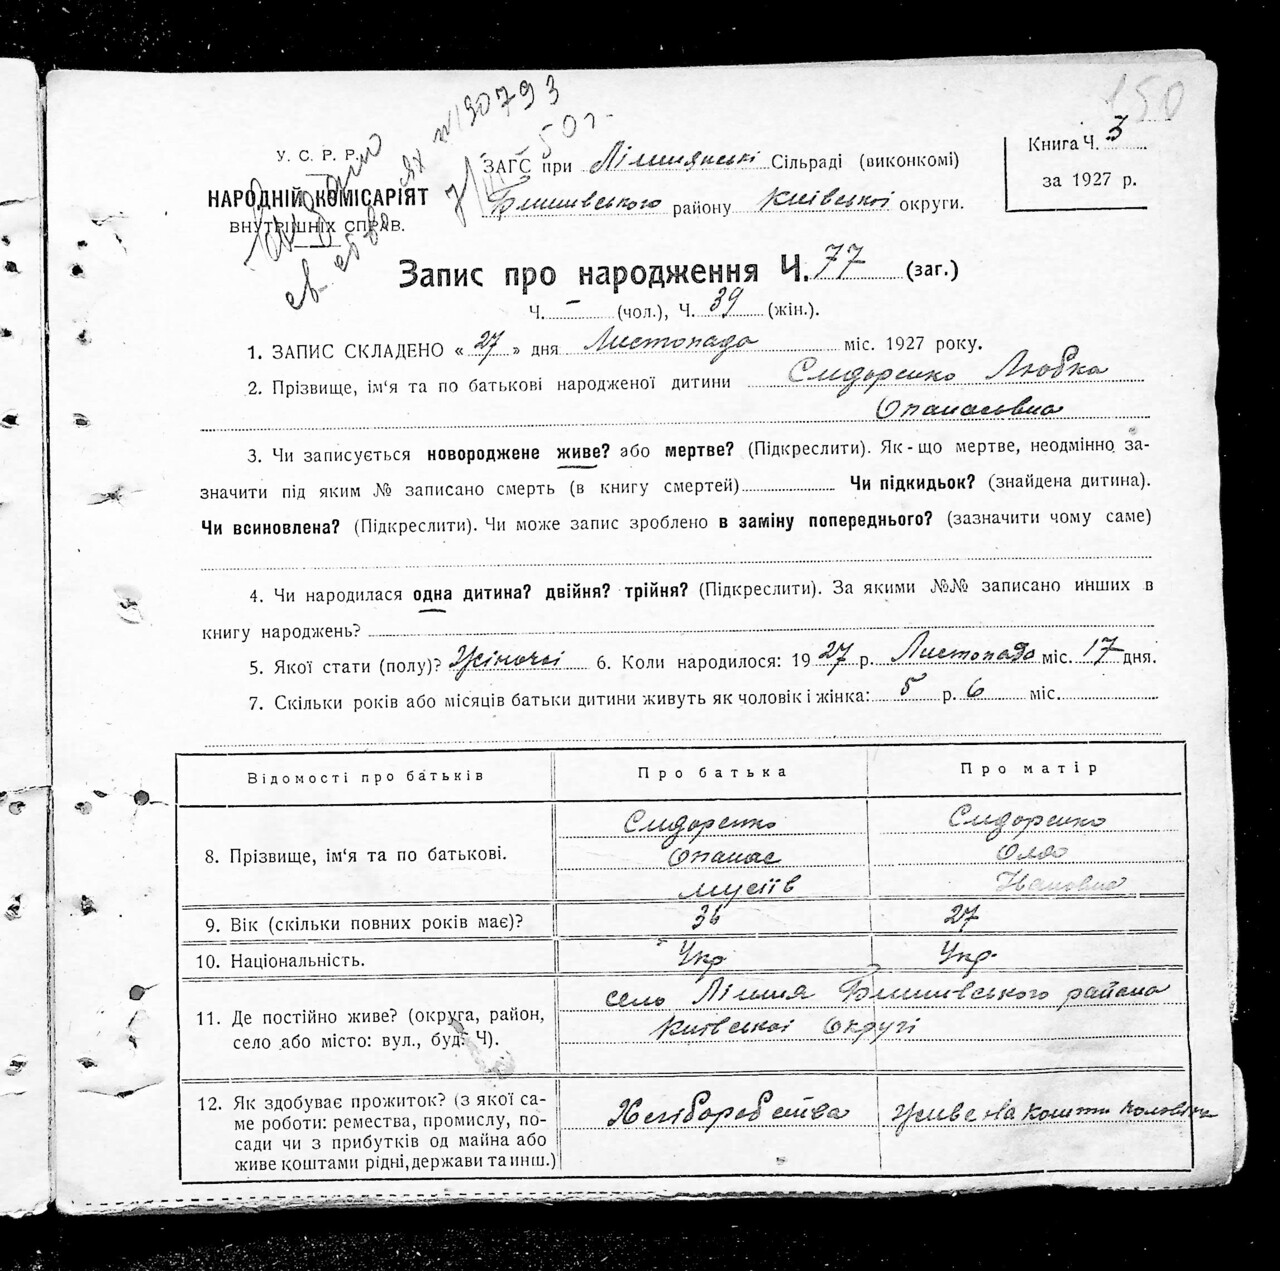 150
№ 190793
50 г.
У. С. Р. Р.
НАРОДНІЙ КОМІСАРІЯТ
ВНУТРІШНІХ СПРАВ.
Видано
св.
ЗАГС при Лішнянські Сільраді (виконкомі)
Бишівського району Київської округи.
Книга Ч. 3
за 1927 р.
Запис про народження Ч. 77 (заг.)
Ч. – (чол.), Ч. 39 (жін.).
1. ЗАПИС СКЛАДЕНО « 27 » дня Листопада міс. 1927 року.
2. Прізвище, ім'я та по батькові народженої дитини Сидоренко Любка
Опанасовна
3. Чи записується новороджене живе? або мертве? (Підкреслити). Як-що мертве, неодмінно за-
значити під яким № записано смерть (в книгу смертей) Чи підкидьок? (знайдена дитина).
Чи всиновлена? (Підкреслити). Чи може запис зроблено в заміну попереднього? (зазначити чому саме)
4. Чи народилася одна дитина? двійня? трійня? (Підкреслити). За якими №№ записано инших в
книгу народжень?
5. Якої стати (полу)? Жіночої 6. Коли народилося: 1927 р. Листопада міс. 17 дня.
7. Скільки років або місяців батьки дитини живуть як чоловік і жінка: 5 р. 6 міс.
Відомості про батьків Про батька Про матір
8. Прізвище, ім'я та по батькові.
Сидоренко Сидоренко
Опанас Оля
Мусіїв Івановна
9. Вік (скільки повних років має)? 36 27
10. Національність. Укр Укр.
11. Де постійно живе? (округа, район,
село або місто: вул., буд. Ч).
село Лішня Бишівського района
Київської Округі
12. Як здобуває прожиток? (з якої са-
ме роботи: ремества, промислу, по-
сади чи з прибутків од майна або
живе коштами рідні, держави та инш.)
Хлібороб живе на кошти чоловіка